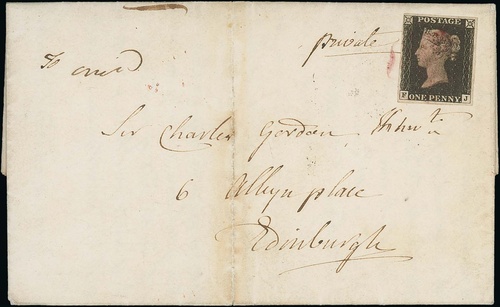 private
POSTAGE
ONE PENNY
F J
Sir Charles Gordon
6 Alleyn place
Edinburgh